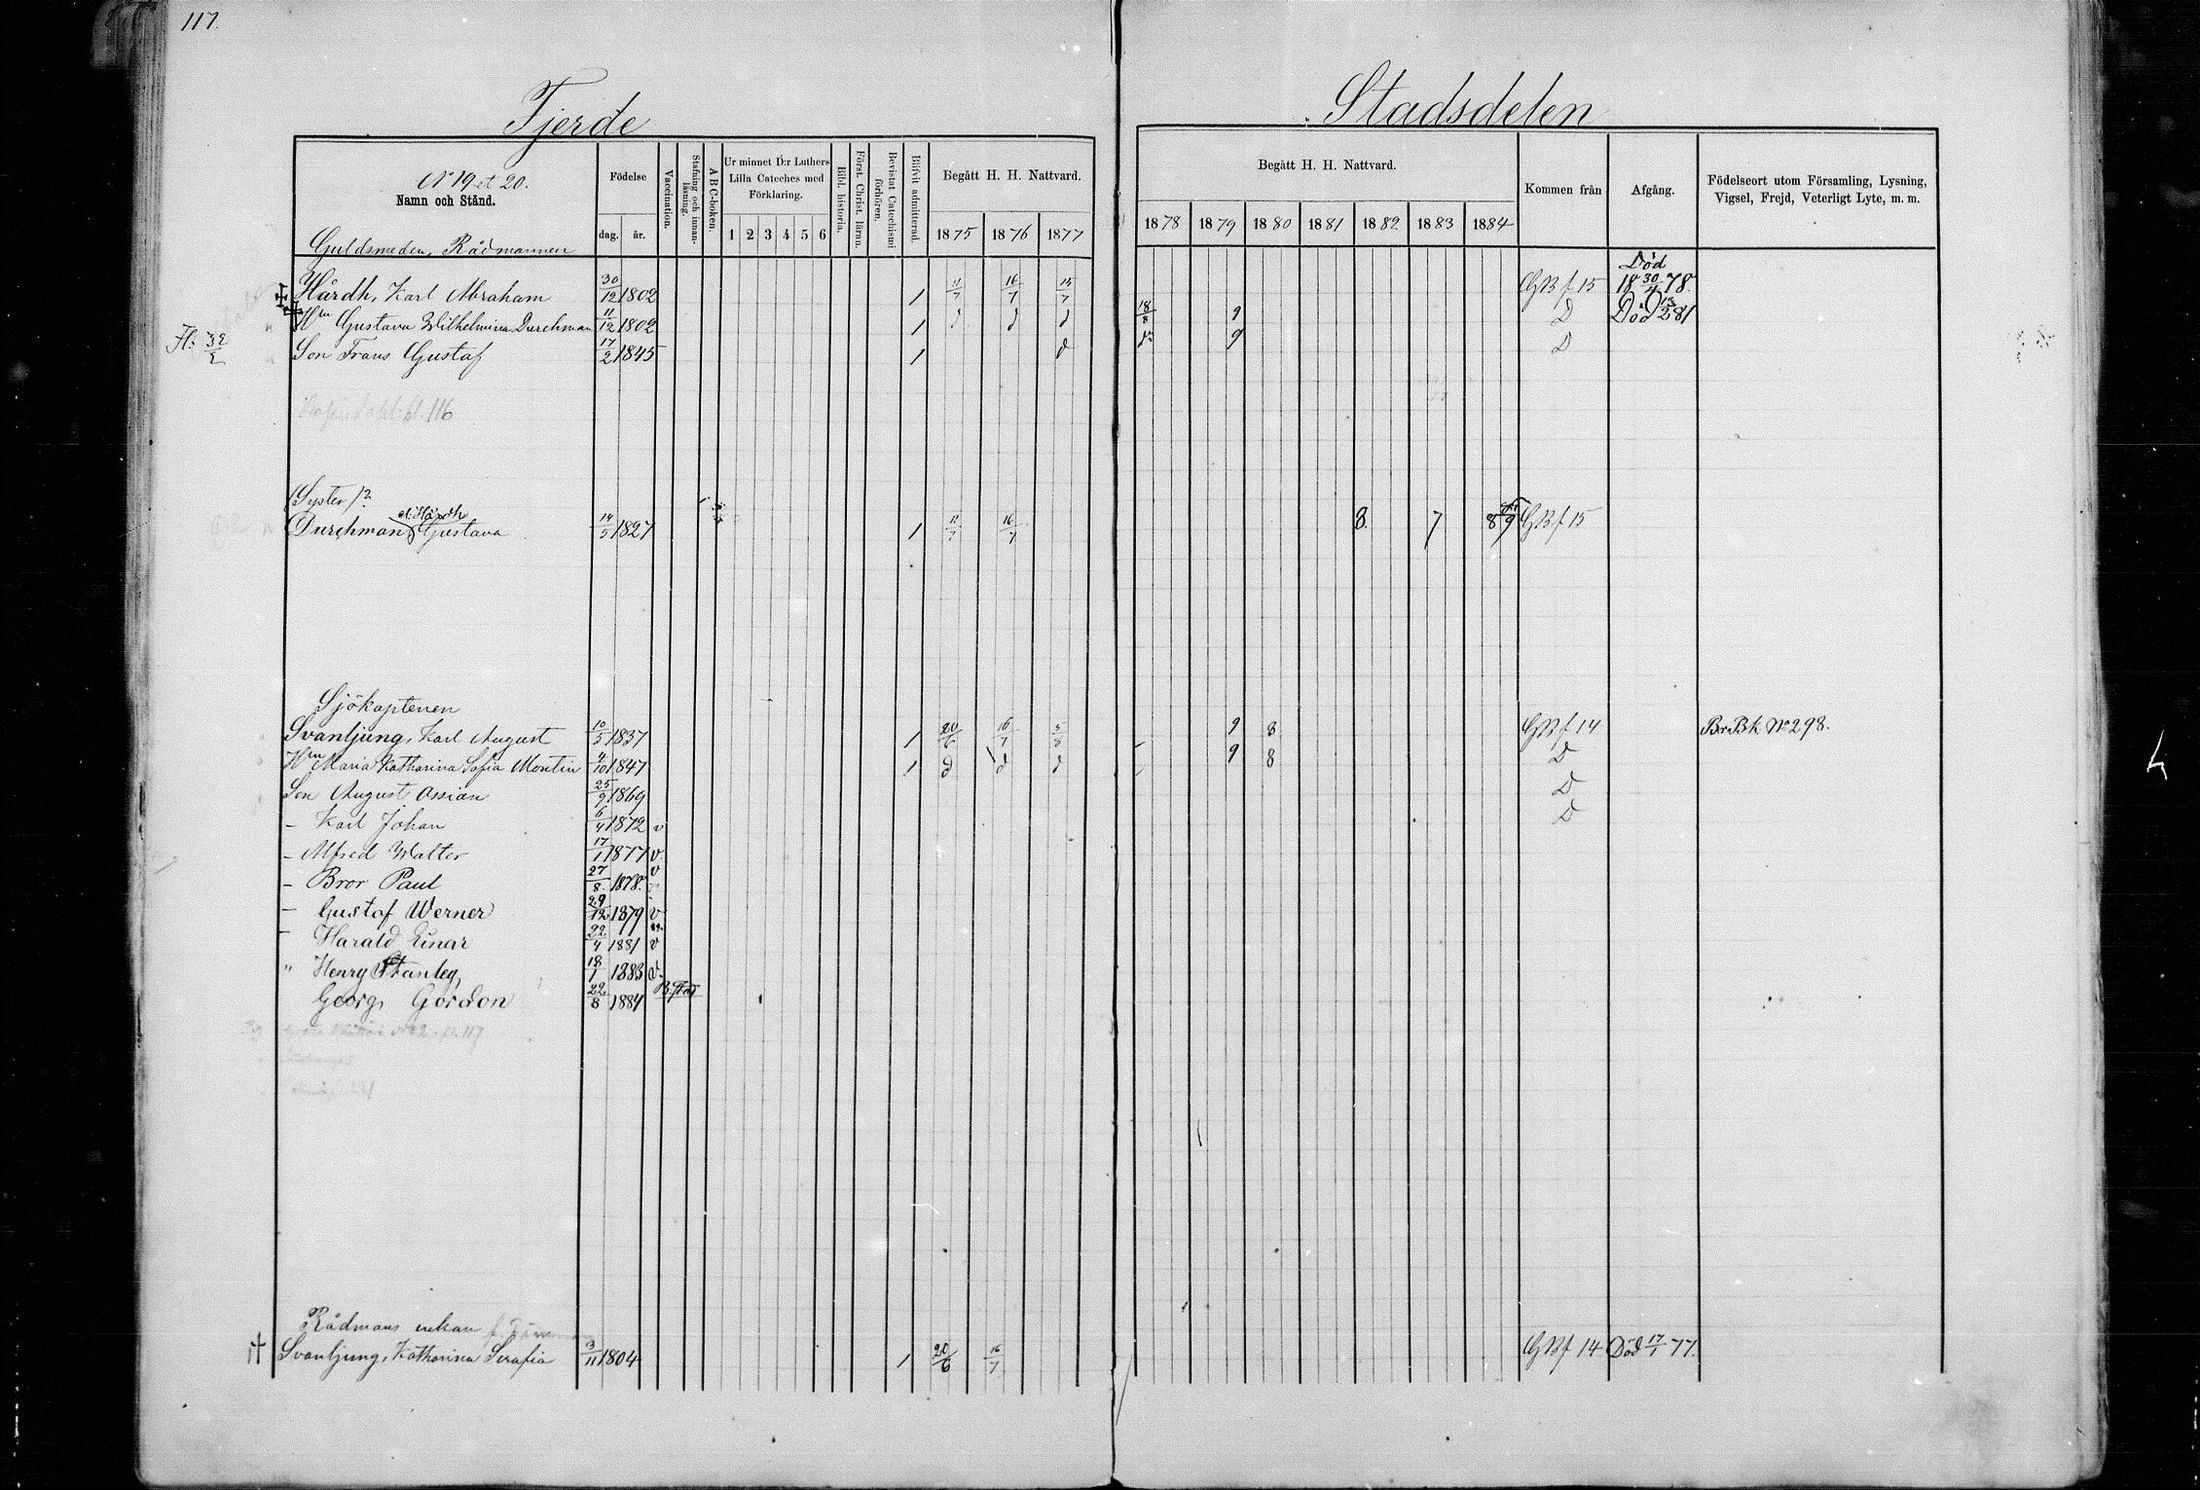 117.
Fjerde Stadsdelen
N 19 et 20.
Namn och Stånd.
Födelse
dag. år.
Vaccination.
Stafning och innanläsning.
ABC-boken.
Ur minnet D:r Luthers Lilla Cateches med Förklaring.
1 2 3 4 5 6
Bibl. historia.
Först. Christ. läran.
Bevistat Catechismi förhören.
Blifvit admitterad.
Begått H. H. Nattvard.
1875 1876 1877
Begått H. H. Nattvard.
1878 1879 1880 1881 1882 1883 1884
Kommen från
Afgång.
Födelseort utom Församling, Lysning, Vigsel, Frejd, Veterligt Lyte, m. m.
Guldsmeden, Rådmannen
Hårdh, Karl Abraham 30/12 1802 1 11/7 16/7 15/7 GB f 15 Död 18 30/4 78.
Hm Gustava Wilhelmina Durchman 11/12 1802 1 d d d 18/8 9 D Död 13/2 81
Fl: 32 Son Frans Gustaf 17/2 1845 1 d d 9 D
bl. 116
(Syster)?
Durchman, Gustava 14/5 1827 1 11/7 16/7 8 7 8 9 GB f 15
Sjökaptenen
Svanljung, Karl August 10/5 1837 1 20/6 16/7 5/8 9 8 GB f 14 Br.Bk. No 298.
Hm Maria Katharina Sofia Montin 4/10 1847 1 d d d 9 8 D
Son August Ossian 25/9 1869 D
- Karl Johan 6/4 1872 v D
- Alfred Walter 17/1 1877 v.
- Bror Paul 27/8. 1878. v
- Gustaf Werner 29/12 1879 v
- Harald Einar 22/4 1881 v
" Henry Stanley, 18/1 1883 v.
Georg Gordon 22/8 1884
Rådmans enkan
Svanljung, Katharina Serafia 3/11 1804 1 20/6 16/7 GB f 14 Död 17/1 77.